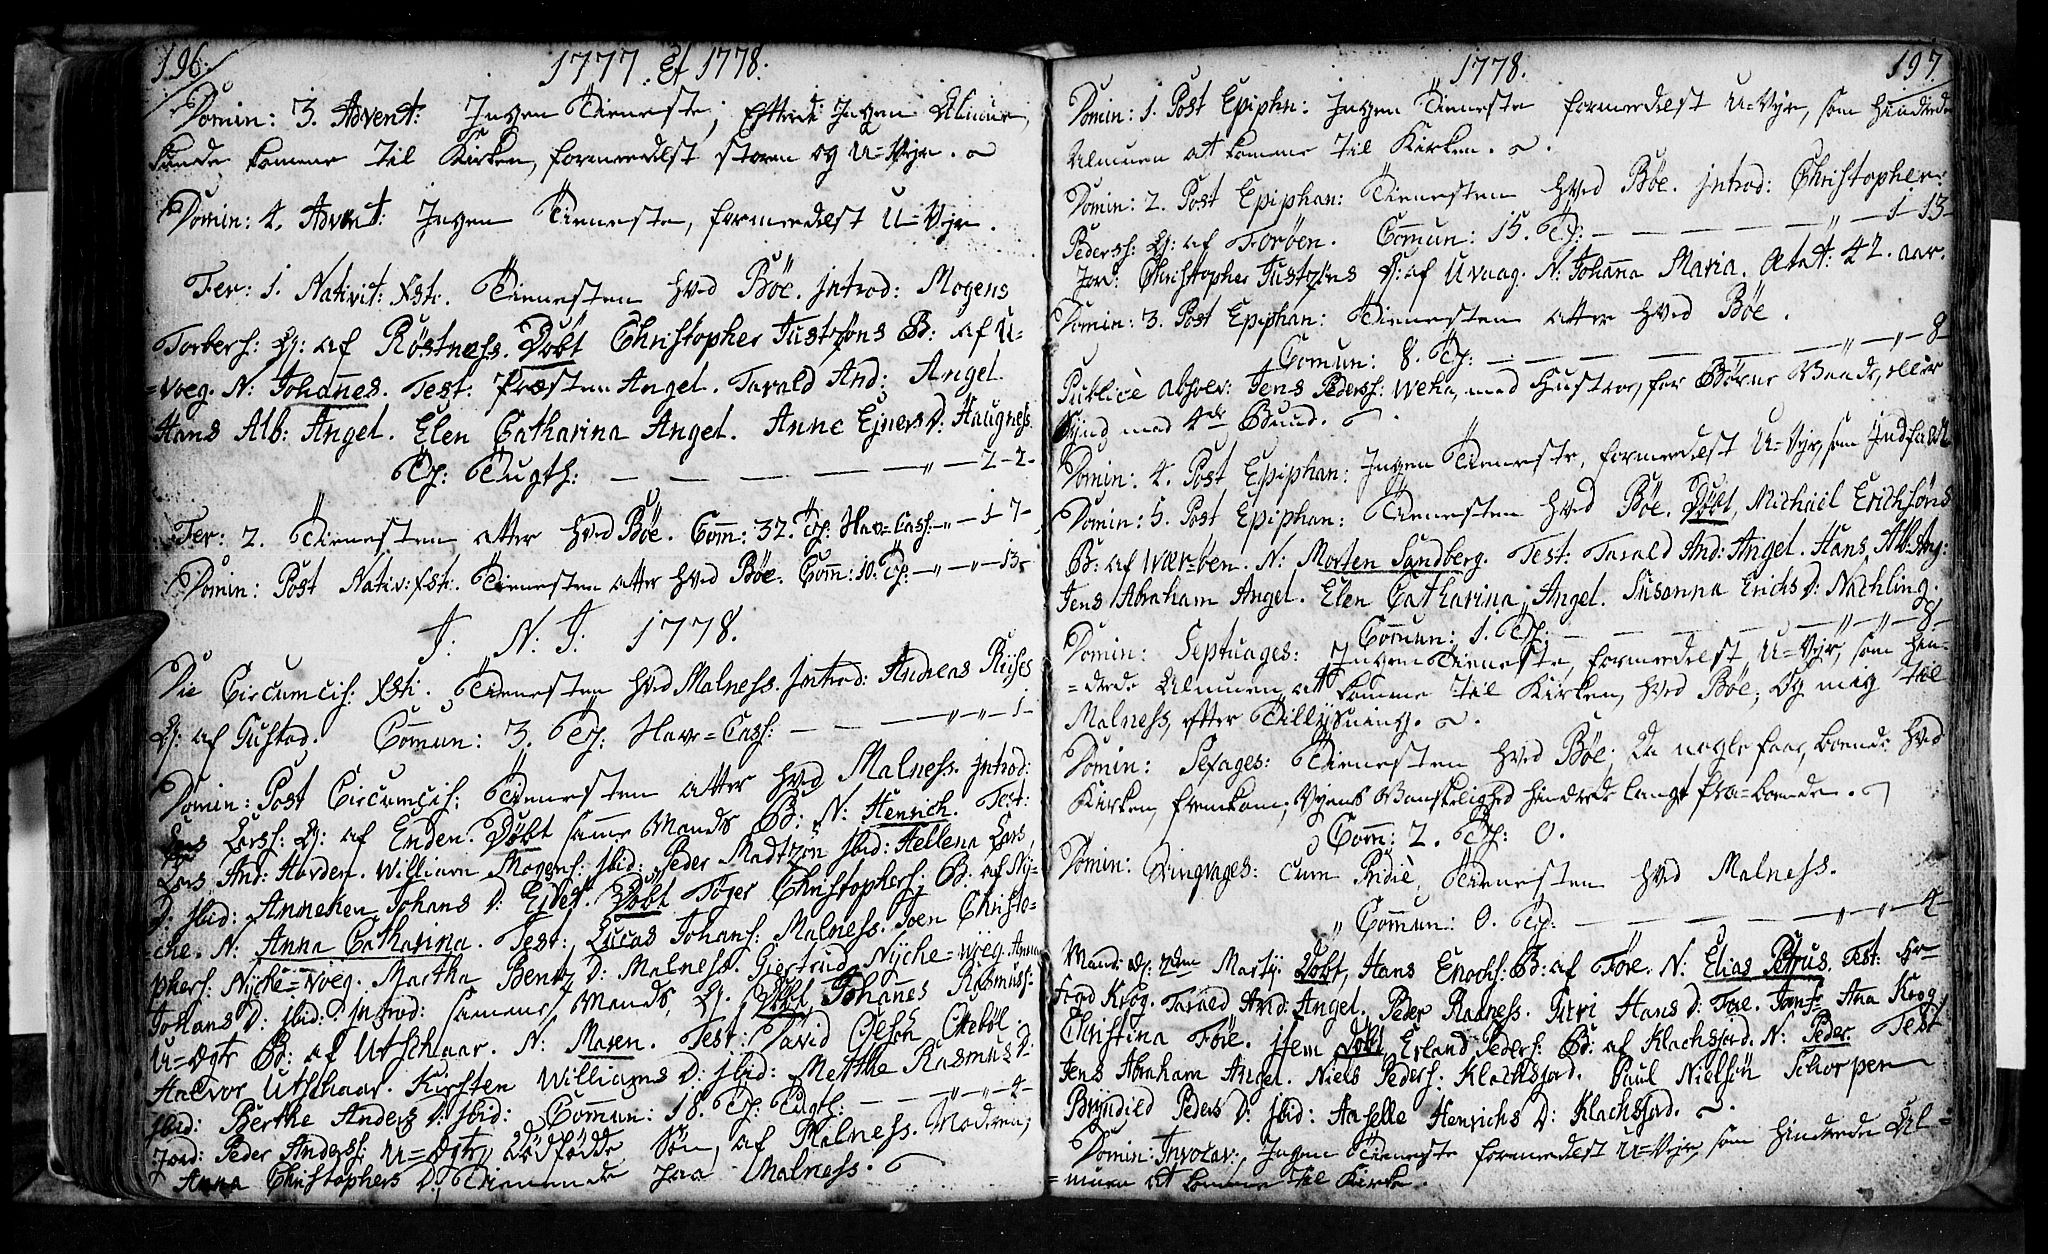 196.
1777. Et 1778.
Domin: 3. Advent: Ingen Tieneste; efterdi Ingen Almue
kunde komme til Kirken, formedelst storm og U=Vejr.
Domin: 4. Advent: Ingen Tieneste, formedelst U=Vejr.
Fer: 1. Nativit: Xsti. Tienesten hved Böe. Introd: Mogens
Torbers: Q: af Röstness. Döbt Christopher Justzöns B: af U-
=voeg. N: Johannes. Test: Præsten Angel. Tarald And: Angel.
Hans Alb: Angel. Elen Catharina Angel. Anne Ejners D: Haugness.
Tj: Tugth: — — — — „ — 2 - 2 -
Fer: 2. Tienesten atter hved Böe. Com̄: 32. Tj: Hav=Cass: — „ — 1 - 7 -
Domin: Post Nativ: Xsti. Tienesten atter hved Böe. Com̄: 10. Tj: — „ — „ — 13
J. N. J. 1778.
Die Circumcis: Xsti. Tienesten hved Malness. Introd: Andreas Riises
Q: af Gustad. Com̄un: 3. Tj: Hav=Cass: — — — „ — „ — 1 -
Domin: Post Circumcis: Tienesten atter hved Malness. Introd:
Lars Larss: Q: af Enden. Döbt samme Mands B: N: Henrich. Test:
Lars And: Hovden. William Mogens: Ibid: Peder Madtzön Ibid: Hellena Lars
D: Ibid: Anneken Johans D: Eidet. Döbt Töger Christophers: B: af Ny-
=che. N: Anna Catharina. Test: Lucas Johans: Malness. Joen Christo-
phers: Nyche=voeg. Martha Bentz D: Malness. Giertrud Nyche=voeg. Anna
Johans D: Ibid: Introd: sammes Mands Q: Döbt Johannes Rasmuss:
U=Ægte B: af Utschaar. N: Maren. Test: David Olsön Otteböl.
Halvor Utschaar. Kirsten Williams D: Ibid: Metthe Rasmus D:
Ibid: Berthe Anders D: Ibid: Com̄un: 18. Tj: Tugth: — — „ — „ — 4 -
Jord: Peder Anderss: U=Ægte, Dödfödde Sön, af Malness. Moderen;
Anna Christophers D: Tienende paa Malness.
1778.
197.
Domin: 1. Post Epiphn: Ingen Tieneste formedelst U=Vejr, som hindrede
Almuen at komme til Kirken.
Domin: 2. Post Epiphan: Tienesten hved Böe. Introd: Christopher
Peders: Q: af Foröen. Com̄un: 15. Tj: — — — — „ — 1 - 13 -
Jord: Christopher Justzöns Q: af Uvaag. N: Johanna Maria. Ætat: 42. aar.
Domin: 3. Post Epiphan: Tienesten atter hved Böe.
Com̄un: 8. Tj: — — — — „ — „ — 8 -
Publicè absolv: Jens Peders: Weha, med Hustroe, for Börne Vaade, eller
Synd med 4de Bund.
Domin: 4. Post Epiphan: Ingen Tieneste, formedelst U=Vejr, som Indfaldt
Domin: 5. Post Epiphan: Tienesten hved Böe. Döbt Michael Erichsöns
B: af Wær=öen. N: Morten Sundberg. Test: Tarald And: Angel. Hans Alb: Ang:
Jens Abraham Angel. Elen Catharina Angel. Susanna Erichs D: Nachling.
Com̄un: 1. Tj: — — — „ — „ — 8
Domin: Septuages: Ingen Tieneste, formedelst U=Vejr, som hin-
=drede Almuen at komme til Kirken, hved Böe; Og mig til
Malness, efter Tillysning.
Domin: Sexages: Tienesten hved Böe; Da nogle faae, boende hved
Kirken, fremkom; Vejens Vanskelighed hindrede langt fra=boende.
Com̄: 2. Tj: 0.
Domin: Qvinqvages: cum Pridiè, Tienesten hved Malness.
Com̄un: 0. Tj: — — — — „ — „ — 4 -
Mand: d: 2den Martj. Döbt, Hans Enochs: B: af Före. N: Elias Petrus. Test: Sr
Figd Krog. Tarald And: Angel. Peder Raaness. Guri Hans D: Före. Jomfr Ana Krog.
Christina Före. Item Döbt Erland Peders: B: af Klachsjord. N: Peder. Test
Jens Abraham Angel. Niels Peders: Klachsjord. Paul Nielsön Schorpen
Bryndild Peders D: Ibid: Aaselle Henrichs D: Klachsjord.
Domin: Invocav: Ingen Tieneste formedelst U=Vejr som hindrede Al-
=muen at komme til Kirke.